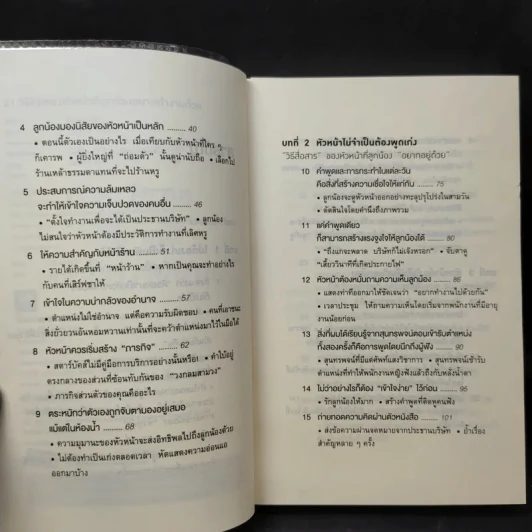 4 ลูกน้องมองนิสัยของหัวหน้าเป็นหลัก ......... 40
• ตอนนี้ตัวเองเป็นอย่างไร เมื่อเทียบกับหัวหน้าที่ใคร ๆ
ก็เคารพ • ผู้ยิ่งใหญ่ที่ "ถ่อมตัว" นั้นดูน่านับถือ • เลือกไป
ร้านเหล้าธรรมดาแทนที่จะไปร้านหรู
5 ประสบการณ์ความล้มเหลว
จะทำให้เข้าใจความเจ็บปวดของคนอื่น ......... 46
• "ตั้งใจทำงานเพื่อจะได้เป็นประธานบริษัท" • ลูกน้อง
ไม่สนใจว่าหัวหน้าต้องมีประวัติการทำงานที่เลิศหรู
6 ให้ความสำคัญกับหน้าร้าน ......... 51
• รายได้เกิดขึ้นที่ "หน้าร้าน" • หากเป็นคุณจะทำอย่างไร
กับคนที่เสิร์ฟชาให้
7 เข้าใจในความน่ากลัวของอำนาจ ......... 57
• ตำแหน่งไม่ใช่อำนาจ แต่คือความรับผิดชอบ • คนที่เอาชนะ
สิ่งยั่วยวนอันหอมหวานเท่านั้นที่จะคว้าตำแหน่งมาไว้ในมือได้
8 หัวหน้าควรเริ่มสร้าง "ภารกิจ" ......... 62
• สตาร์บัคส์ไม่มีคู่มือการบริการอย่างนั้นหรือ! • คำไม้อยู่
ตรงกลางของส่วนที่ซ้อนทับกันของ "วงกลมสามวง"
• ภารกิจส่วนตัวของคุณคืออะไร
9 ตระหนักว่าตัวเองถูกจับตามองอยู่เสมอ
แม้แต่ในห้องน้ำ ......... 68
• ความมุมานะของหัวหน้าจะส่งอิทธิพลไปถึงลูกน้องด้วย
• ไม่ต้องทำเป็นเก่งตลอดเวลา หัดแสดงความอ่อนแอ
ออกมาบ้าง
บทที่ 2 หัวหน้าไม่จำเป็นต้องพูดเก่ง
"วิธีสื่อสาร" ของหัวหน้าที่ลูกน้อง "อยากอยู่ด้วย"
10 คำพูดและการกระทำในแต่ละวัน
คือสิ่งที่สร้างความเชื่อใจให้แก่กัน ......... 75
• ลูกน้องจะดูหัวหน้าออกอย่างทะลุปรุโปร่งในสามวัน
• ตัดสินใจโดยคำนึงถึงภาพรวม
11 แค่คำพูดเดียว
ก็สามารถสร้างแรงจูงใจให้ลูกน้องได้ ......... 80
• "ถึงแกจะพลาด บริษัทก็ไม่เจ๊งหรอก" • จับตาดู
"เสี้ยววินาทีที่เกิดประกายไฟ"
12 หัวหน้าต้องหมั่นถามความเห็นลูกน้อง ......... 86
• แสดงท่าทีออกมาให้ชัดเจนว่า "อยากทำงานไปด้วยกัน"
• เวลาประชุม ให้ถามความเห็นโดยเริ่มจากพนักงานที่มีอายุ
งานน้อยก่อน
13 สิ่งที่ผมได้เรียนรู้จากสุนทรพจน์ตอนเข้ารับตำแหน่ง
ทั้งสองครั้งก็คือการพูดโดยนึกถึงผู้ฟัง ......... 90
• สุนทรพจน์ที่มีแต่ศัพท์แสงวิชาการ • สุนทรพจน์เข้ารับ
ตำแหน่งที่ทำให้พนักงานหญิงฟังแล้วถึงกับหลั่งน้ำตา
14 ไม่ว่าอย่างไรก็ต้อง "เข้าใจง่าย" ไว้ก่อน ......... 96
• รักลูกน้องให้มาก • สร้างคำพูดที่ติดหูคนฟัง
15 ถ่ายทอดความคิดผ่านตัวหนังสือ ......... 101
• ส่งข้อความผ่านจดหมายจากประธานบริษัท • ย้ำเรื่อง
สำคัญหลาย ๆ ครั้ง